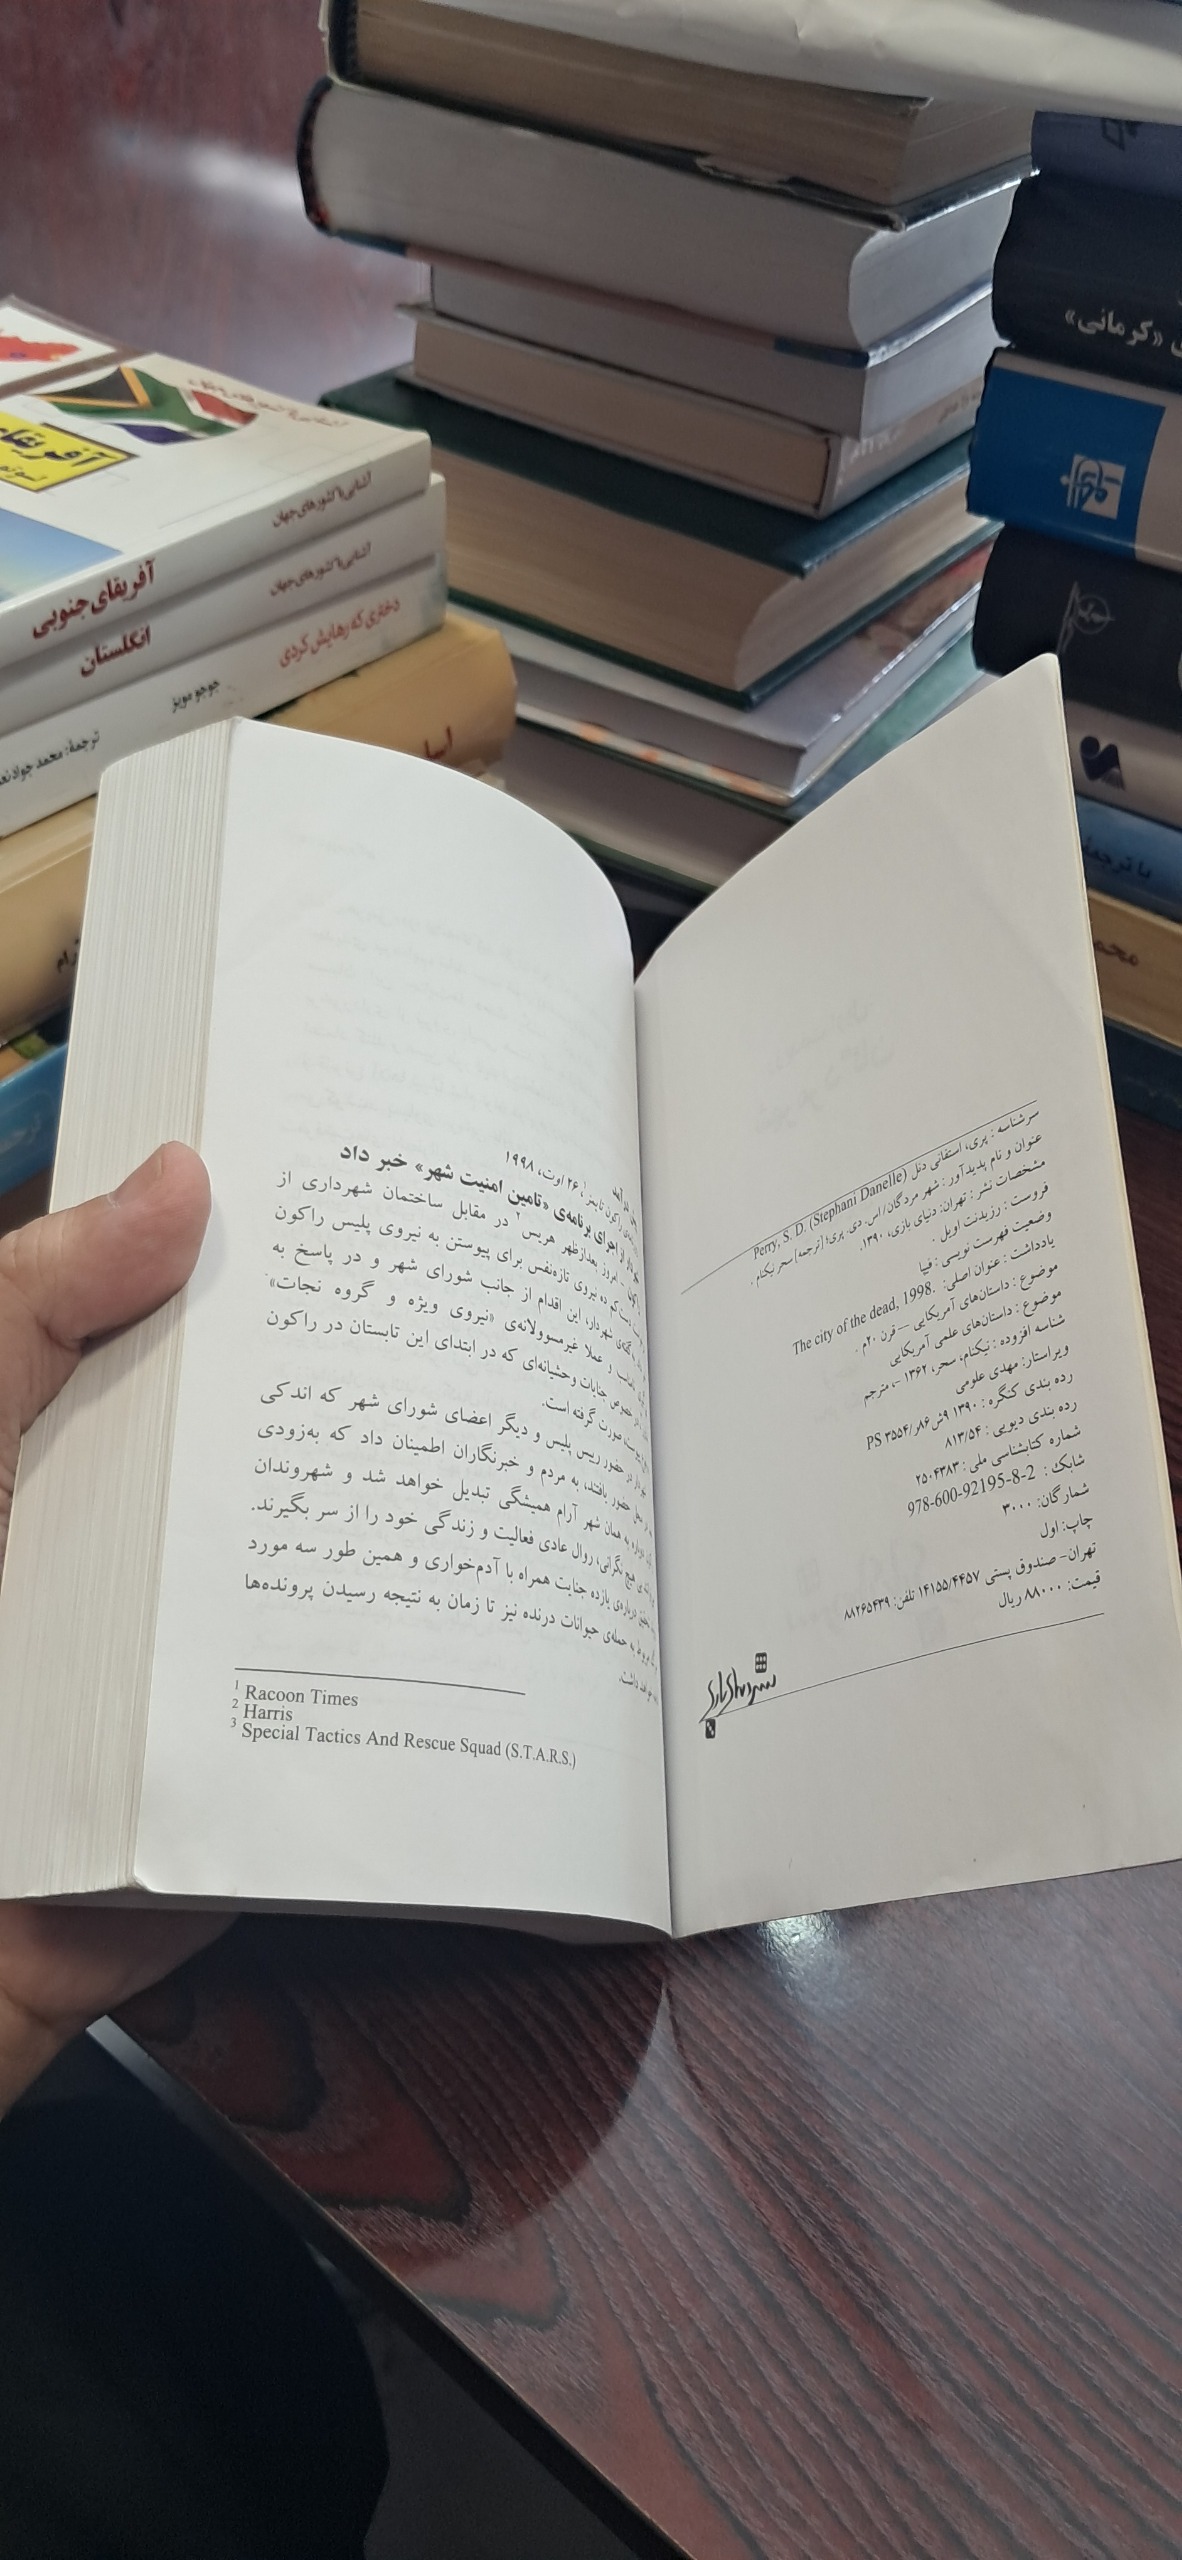 «کرمانی»
آفریقای
آشنایی با کشورهای جهان
آفریقای جنوبی
آشنایی با کشورهای جهان
انگلستان
دختری که رهایش کردی
جوجو مویز
ترجمهٔ: محمد جواد
با ترجمهٔ
سرشناسه : پری، استفانی دنل Perry, S. D. (Stephani Danelle)
عنوان و نام پدیدآور : شهر مردگان/ اس. دی. پری؛ [ترجمه] سحر نیکنام .
مشخصات نشر : تهران: دنیای بازی، ۱۳۹۰.
فروست : رزیدنت اویل .
وضعیت فهرست نویسی : فیپا
یادداشت : عنوان اصلی: The city of the dead, 1998.
موضوع : داستان‌های آمریکایی — قرن ۲۰م .
موضوع : داستان‌های علمی آمریکایی
شناسه افزوده : نیکنام، سحر، ۱۳۶۲ -، مترجم
ویراستار: مهدی علومی
رده بندی کنگره : ۱۳۹۰ ۹ش۸۶ر/PS ۳۵۵۴
رده بندی دیویی : ۸۱۳/۵۴
شماره کتابشناسی ملی : ۲۵۰۴۳۸۳
شابک : 978-600-92195-8-2
شمارگان: ۳۰۰۰
چاپ: اول
تهران- صندوق پستی ۱۴۱۵۵/۴۴۵۷ تلفن: ۸۸۲۶۵۴۳۹
قیمت: ۸۸۰۰۰ ریال
راکون تایمز¹، ۲۶/اوت، ۱۹۹۸
از اجرای برنامه‌ی «تامین امنیت شهر» خبر داد
امروز بعدازظهر هریس² در مقابل ساختمان شهرداری از
ده نیروی تازه‌نفس برای پیوستن به نیروی پلیس راکون
شهردار، این اقدام از جانب شورای شهر و در پاسخ به
و عملا غیرمسوولانه‌ی «نیروی ویژه و گروه نجات»
خصوص جنایات وحشیانه‌ای که در ابتدای این تابستان در راکون
صورت گرفته است.
در حضور رییس پلیس و دیگر اعضای شورای شهر که اندکی
حضور یافتند، به مردم و خبرنگاران اطمینان داد که به‌زودی
به همان شهر آرام همیشگی تبدیل خواهد شد و شهروندان
هیچ نگرانی، روال عادی فعالیت و زندگی خود را از سر بگیرند.
درباره‌ی یازده جنایت همراه با آدم‌خواری و همین طور سه مورد
مربوط به حمله‌ی حیوانات درنده نیز تا زمان به نتیجه رسیدن پرونده‌ها
خواهد داشت.
1 Racoon Times
2 Harris
3 Special Tactics And Rescue Squad (S.T.A.R.S.)